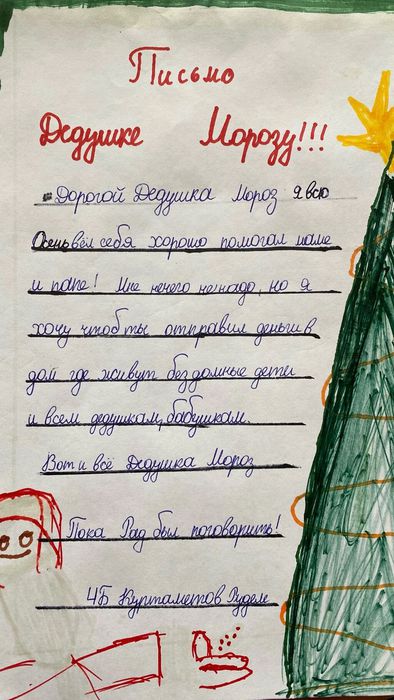 Письмо
Дедушке Морозу!!!
Дорогой Дедушка Мороз я всю
Осень вёл себя хорошо помогал маме
и папе! Мне нечего не надо, но я
хочу чтоб ты отправил деньги в
дом где живут бездомные дети
и всем дедушкам, бабушкам.
Вот и всё Дедушка Мороз
Пока Рад был поговорить!
4Б Куртаметов